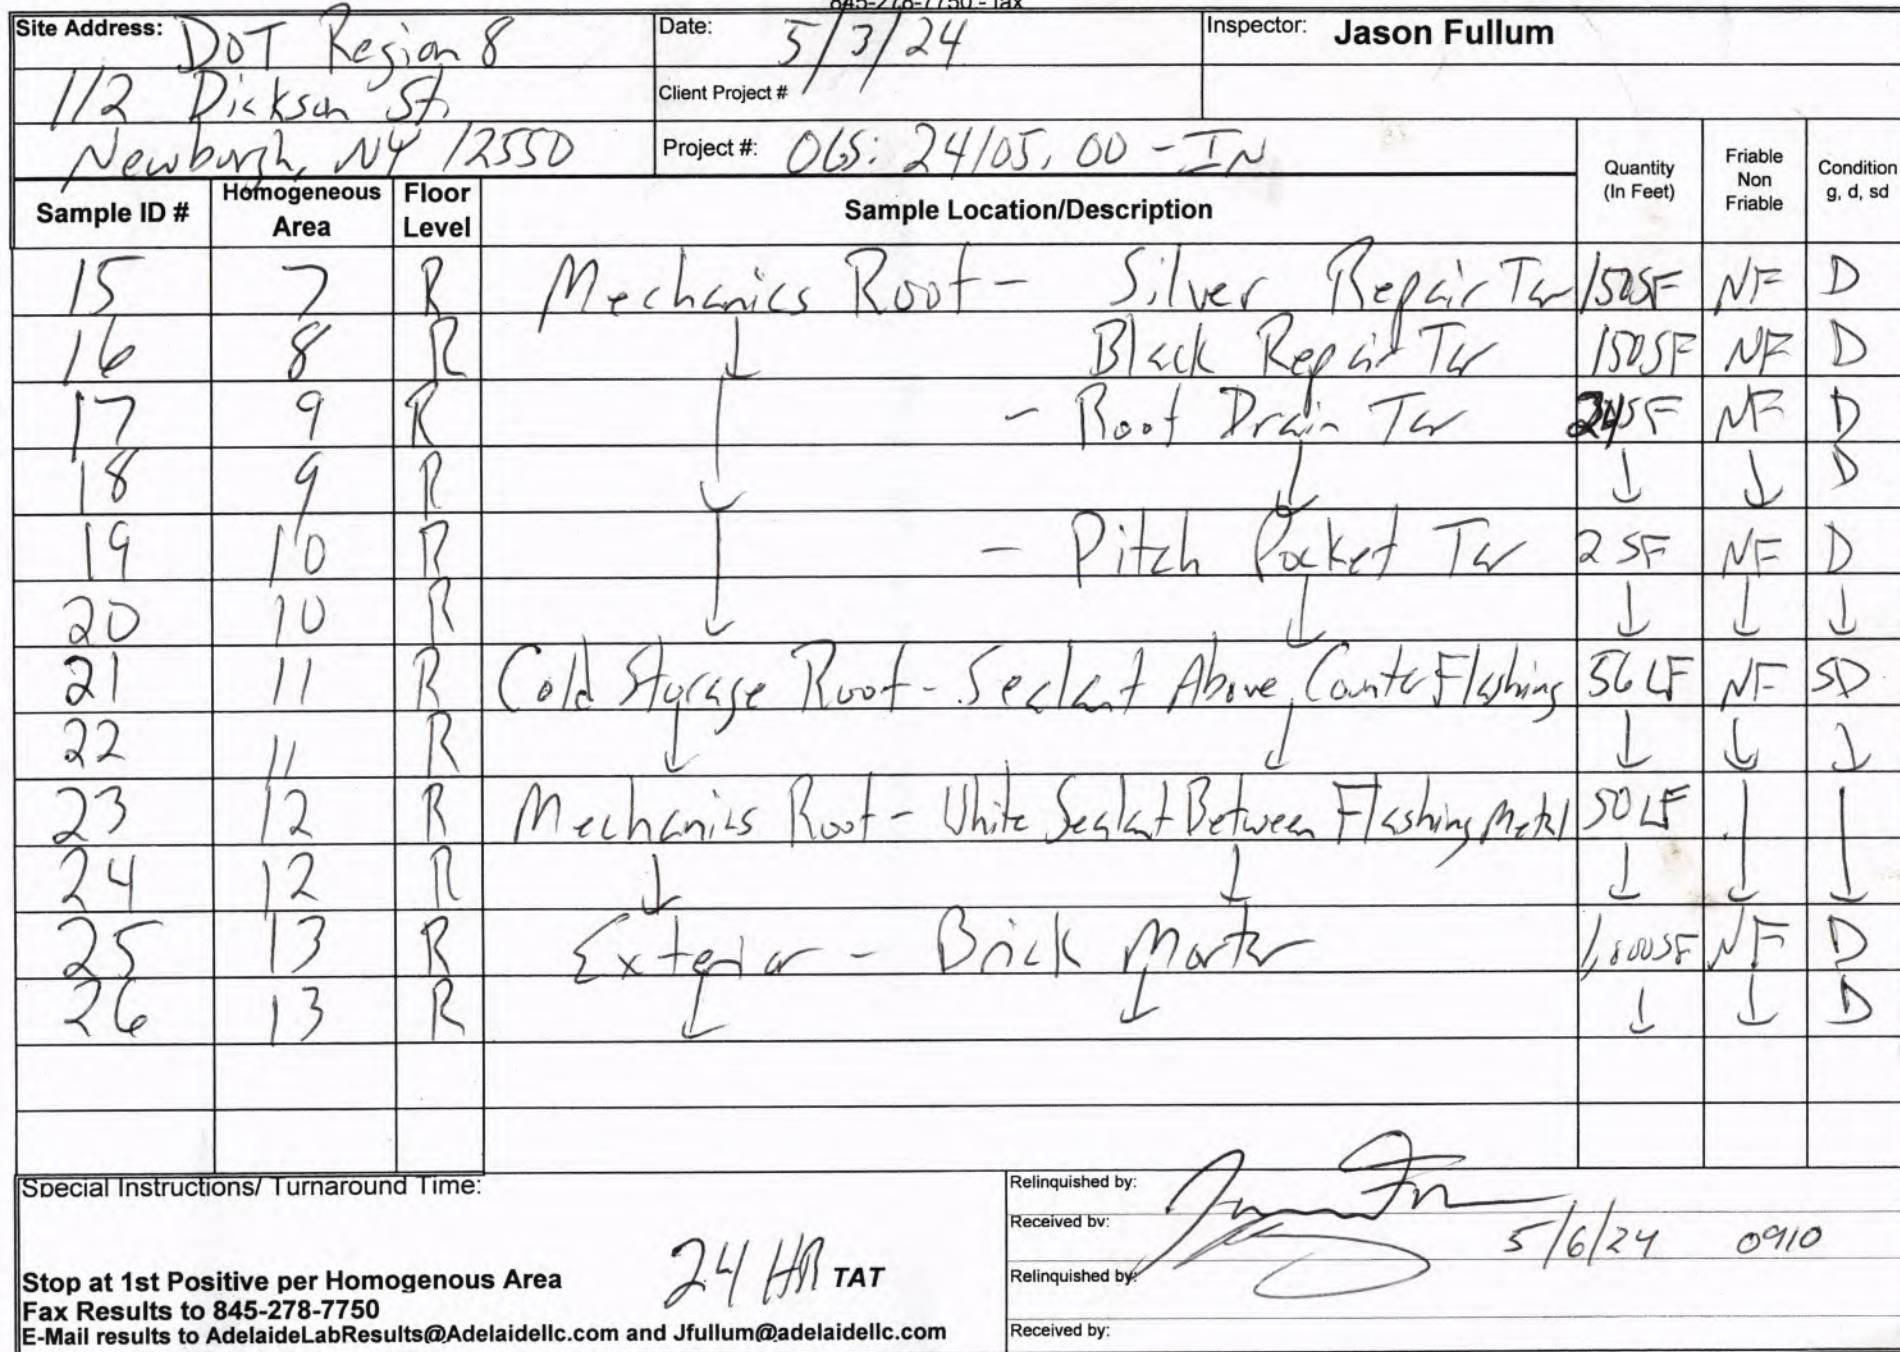 845-278-7750 - fax
Site Address: DOT Region 8 Date: 5/3/24 Inspector: Jason Fullum
112 Dickson St. Client Project #
Newburgh, NY 12550 Project #: OGS: 24105.00 - IN
Sample ID # Homogeneous Area Floor Level Sample Location/Description Quantity (In Feet) Friable Non Friable Condition g, d, sd
15 7 R Mechanics Roof - Silver Repair Tar 150SF NF D
16 8 R ↓ Black Repair Tar 150SF NF D
17 9 R - Roof Drain Tar 24SF NF D
18 9 R ↓ ↓ ↓ ↓ D
19 10 R - Pitch Pocket Tar 2 SF NF D
20 10 R ↓ ↓ ↓ ↓ ↓
21 11 R Cold Storage Roof - Sealant Above Counter Flashing 56 LF NF SD
22 11 R ↓ ↓ ↓ ↓ ↓
23 12 R Mechanics Roof - White Sealant Between Flashing Metal 50 LF
24 12 R ↓ ↓ ↓ ↓ ↓
25 13 R Exterior - Brick Mortar 1,800SF NF D
26 13 R ↓ ↓ ↓ ↓ D
Special Instructions/ Turnaround Time:
24 HR TAT
Stop at 1st Positive per Homogenous Area
Fax Results to 845-278-7750
E-Mail results to AdelaideLabResults@Adelaidellc.com and Jfullum@adelaidellc.com
Relinquished by:
Received by: 5/6/24 0910
Relinquished by:
Received by: